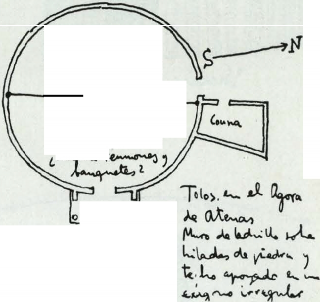 S N
Couna
reuniones y
banquetes?
Tolos. en el Agora
de Atenas
Muro de ladrillo sobre
hiladas de piedra y
techo apoyado en un
exágono irregular